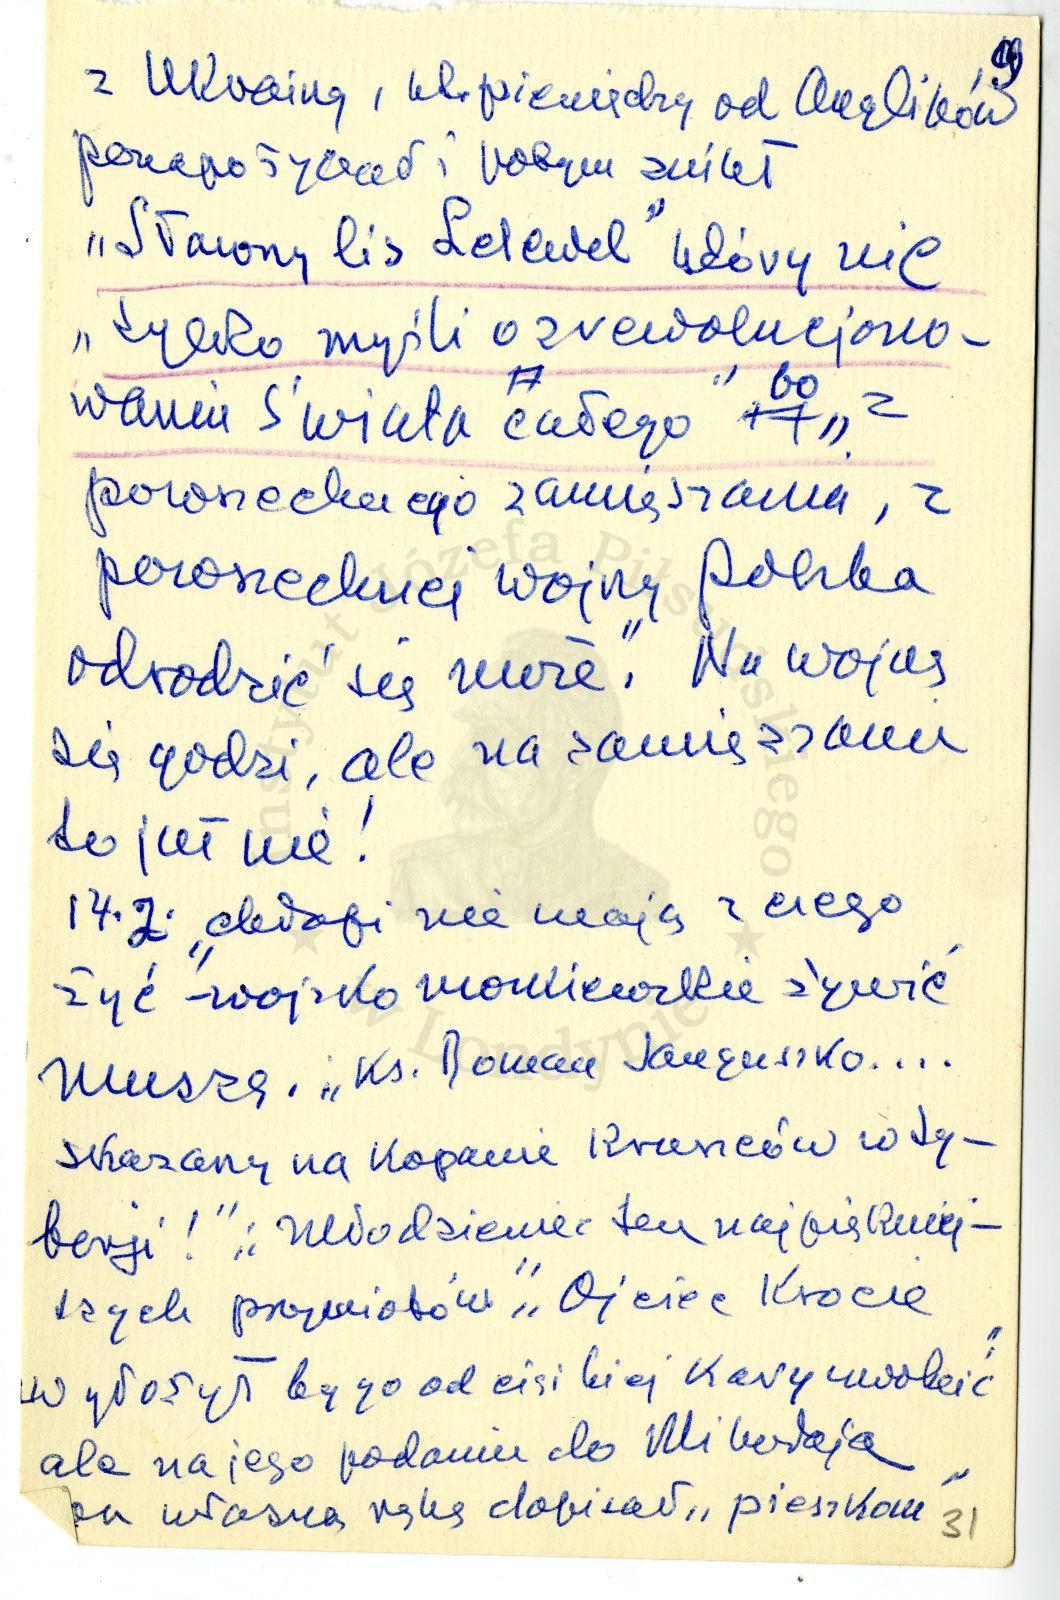 9
z Ukrainą, wł. pieniędzy od Anglików
ponapożyczał i robym znikł
„Sławony lis Lelewel" który nie
„tylko myśli o zrewolucjono-
waniu świata całego" bo „z
powszechnego zamięszania, z
powszechnej wojny Polska
odrodzić się może". Na wojnę
się godzi, ale na zamięszanie
to już nie!
14.2. „chłopi nie mają z czego
żyć" – wojsko moskiewskie żywić
muszą. „Ks. Roman Sanguszko....
skazany na kopanie kruszców w Sy-
berji!" „Młodzieniec ten najpiękniej-
szych przymiotów" „Ojciec Krocie
wyłożył by go od ciężkiej kary uwolnić"
ale na jego podaniu do Mikołaja
on własną ręką dopisał „pieszkom"
31
Instytut Józefa Piłsudskiego
w Londynie